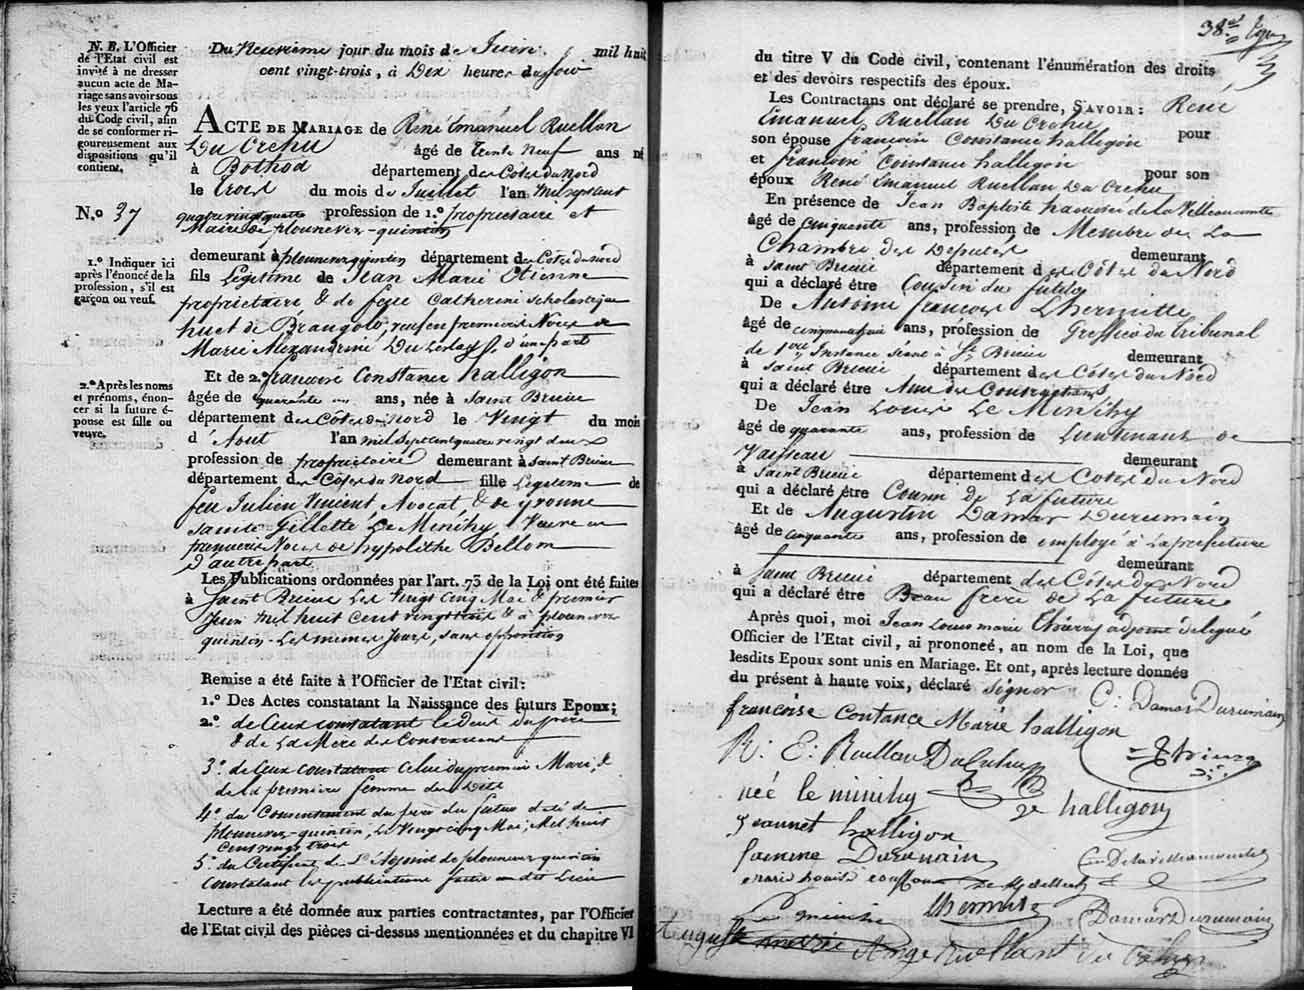 N. B. L'Officier
de l'Etat civil est
invité à ne dresser
aucun acte de Ma-
riage sans avoir sous
les yeux l'article 76
du Code civil, afin
de se conformer ri-
goureusement aux
dispositions qu'il
contient.
N.o 37
1.o Indiquer ici
après l'énoncé de la
profession, s'il est
garçon ou veuf.
2.o Après les noms
et prénoms, énon-
cer si la future é-
pouse est fille ou
veuve.
Du Neuvieme jour du mois de Juin mil huit
cent vingt-trois, à Dix heures du soir
ACTE DE MARIAGE de René Emanuel Ruellan
Du Crehu âgé de trente neuf ans né
à Bothoa département des Côtes du nord
le trois du mois de Juillet l'an mil sept cent
quatre vingt quatre profession de 1.o propriétaire et
Maire de plounevez-quintin
demeurant à plounevez quintin département des Côtes du nord
fils Légitime de Jean Marie Etienne
propriétaire & de feue Catherine Scholastique
huet de Brangolo, veuf en premieres Noces de
Marie Alexandrine Du d'une part
Et de 2.o françoise Constance halligon
âgée de quarante ans, née à Saint Brieuc
département des Côtes du Nord le Vingt du mois
d'Aout l'an mil sept cent quatre vingt deux
profession de propriétaire demeurant à Saint Brieuc
département des Côtes du Nord fille Légitime de
feu Julien Vincent, Avocat, & de yvonne
Sainte Gillette Le Minihy Veuve en
premieres Noces de hypolithe Bellom
d'autre part
Les Publications ordonnées par l'art. 73 de la Loi ont été faites
à Saint Brieuc les vingt cinq Mai & premier
Juin mil huit cent vingt trois & à plounevez
quintin les mêmes jours, sans opposition
Remise a été faite à l'Officier de l'Etat civil:
1.o Des Actes constatant la Naissance des futurs Epoux;
2.o de Ceux constatant le décès du père
& de La Mère des Contractans
3.o de Ceux constatant celui du premier Mari, &
de la première femme des dits
4.o du Consentement du père du futur daté de
plounevez-quintin, le vingt cinq Mai, Mil huit
cent vingt trois
5.o du Certificat de L'Adjoint de plounevez quintin
constatant les publications faites au dit Lieu
Lecture a été donnée aux parties contractantes, par l'Officier
de l'Etat civil des pièces ci-dessus mentionnées et du chapitre VI
38.e
du titre V du Code civil, contenant l'énumération des droits
et des devoirs respectifs des époux.
Les Contractans ont déclaré se prendre, SAVOIR: René
Emanuel Ruellan Du Crehu pour
son épouse françoise Constance halligon
et françoise Constance halligon pour son
époux René Emanuel Ruellan Du Crehu
En présence de Jean Baptiste de la Villeaucomte
âgé de cinquante ans, profession de Membre de La
Chambre des Députés demeurant
à Saint Brieuc département des Côtes du Nord
qui a déclaré être Cousin du futur
De Antoine françois Lhermitte
âgé de ans, profession de Greffier du tribunal
de 1ere Instance séant à St Brieuc demeurant
à Saint Brieuc département des Côtes du Nord
qui a déclaré être Ami des Contractans
De Jean Louis Le Minihy
âgé de quarante ans, profession de Lieutenant de
Vaisseau demeurant
à Saint Brieuc département des Côtes du Nord
qui a déclaré être Cousin de La future
Et de Augustin Damar Durumain
âgé de cinquante ans, profession de employé à La préfecture
demeurant
à Saint Brieuc département des Côtes du Nord
qui a déclaré être Beau frère de La future
Après quoi, moi Jean Louis marie Thierry adjoint délégué
Officier de l'Etat civil, ai prononcé, au nom de la Loi, que
lesdits Epoux sont unis en Mariage. Et ont, après lecture donnée
du présent à haute voix, déclaré signer
C: Damar Durumain
francoise Contance Marie halligon
R: E: Ruellan Du Crehu
Thierry
née le minihy
halligon
Jeannet halligon
Durumain
DelaVilleaucomte
marie louise
Lhermitte
Le minihy
Damar Durumain
Auguste
Ange Ruellant du Crehu